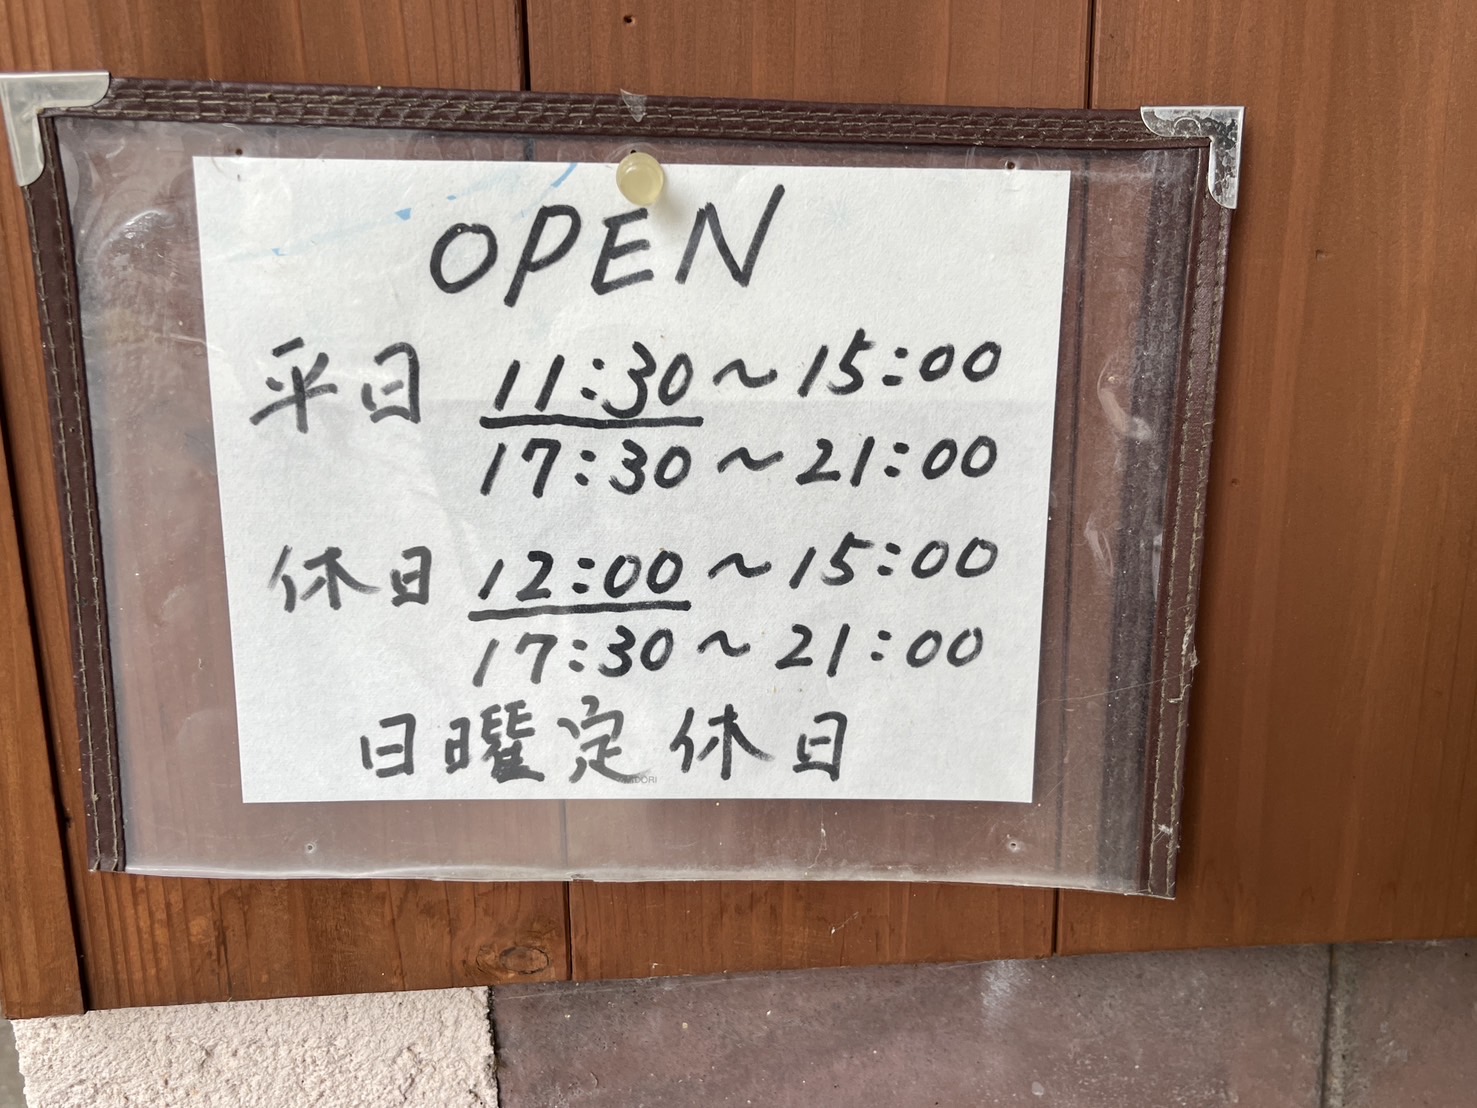 OPEN
平日 11:30～15:00
17:30～21:00
休日 12:00～15:00
17:30～21:00
日曜定休日
MIDORI